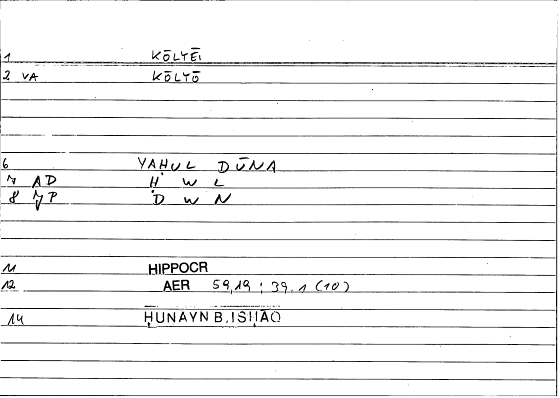 1 KŌLYĒI
2 VA KŌLYŌ
6 YAḤUL DŪNA
7 AD Ḥ W L
8 JP D W N
11 HIPPOCR
12 AER 59,19 : 39.1 (10)
14 ḤUNAYN B. ISḤĀQ